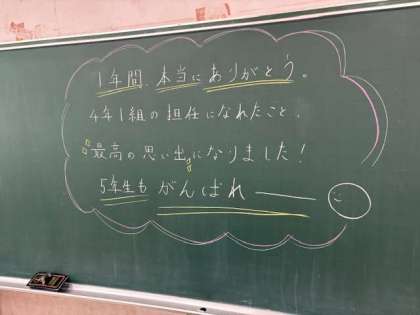 1年間、本当にありがとう。
4年1組の担任になれたこと、
最高の思い出になりました!
5年生もがんばれー